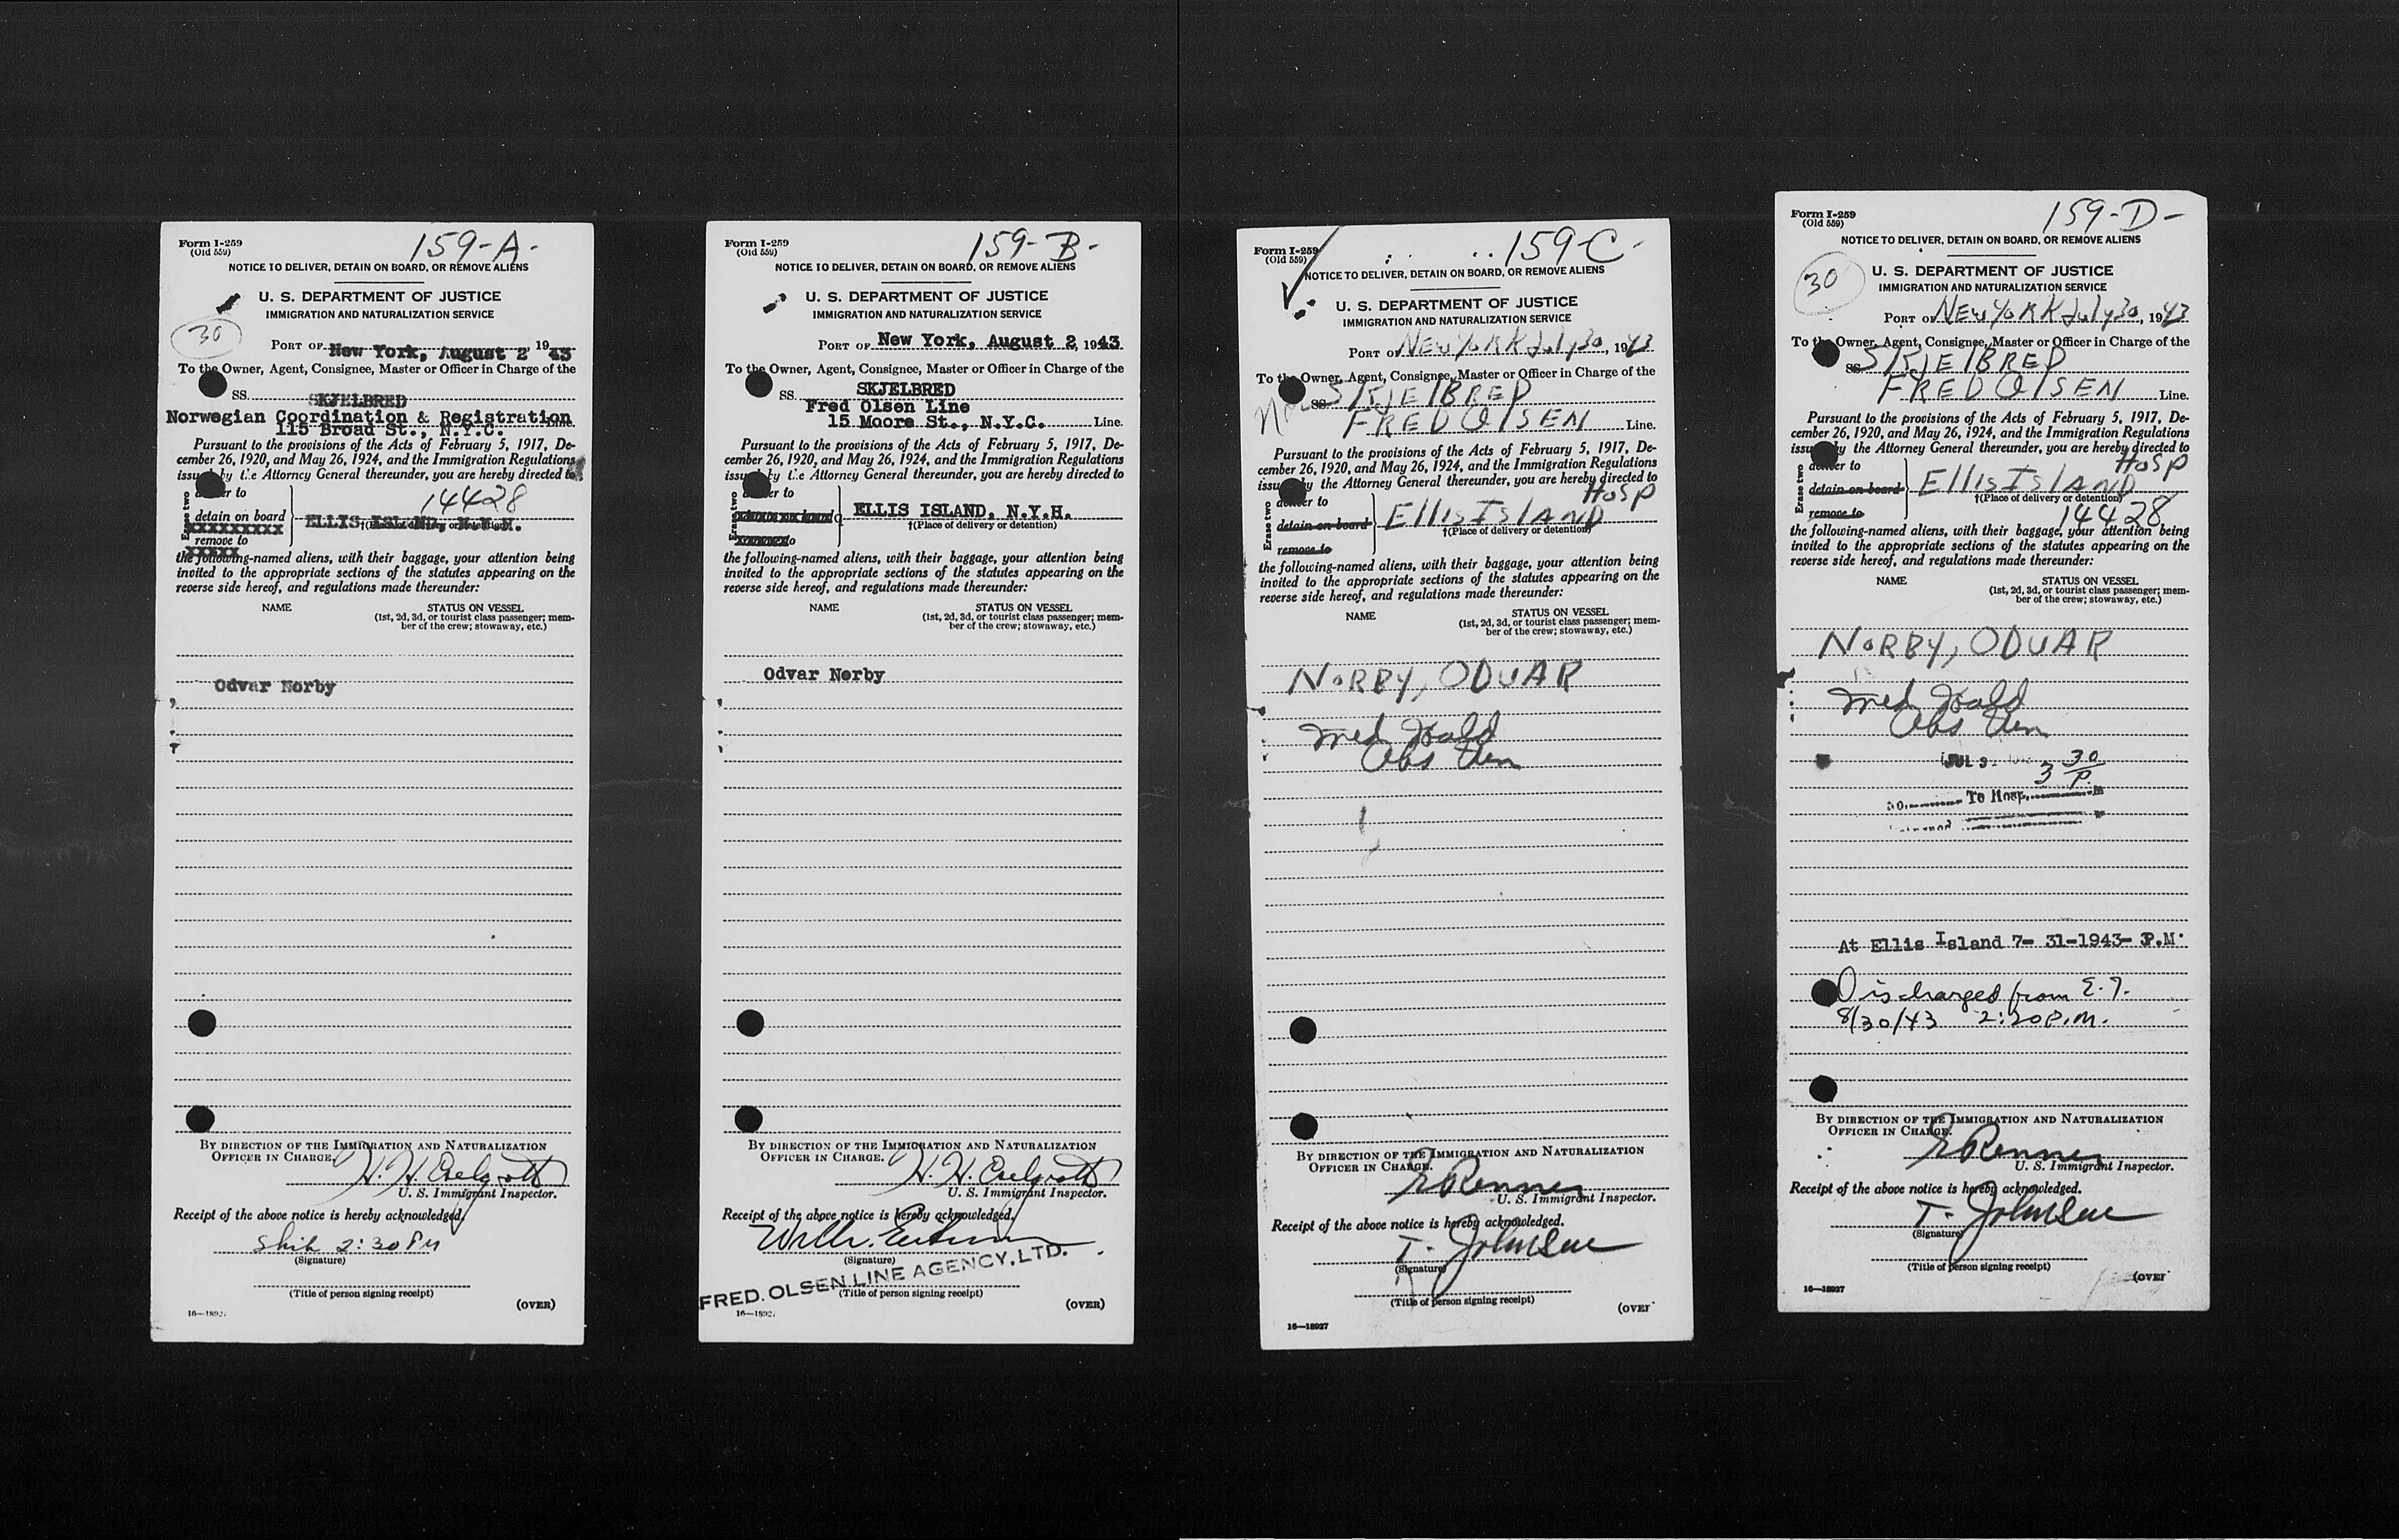 159-A-
Form I-259
(Old 559)
NOTICE TO DELIVER, DETAIN ON BOARD, OR REMOVE ALIENS
U. S. DEPARTMENT OF JUSTICE
IMMIGRATION AND NATURALIZATION SERVICE
30
PORT OF New York, August 2 1943
To the Owner, Agent, Consignee, Master or Officer in Charge of the
SS. SKJELBRED
Norwegian Coordination & Registration
115 Broad St., N.Y.C.
Pursuant to the provisions of the Acts of February 5, 1917, De-
cember 26, 1920, and May 26, 1924, and the Immigration Regulations
issued by the Attorney General thereunder, you are hereby directed to
Erase two
deliver to
14428
detain on board
xxxxxxxxx
ELLIS ISLAND, N.Y.H.
†(Place of delivery or detention)
remove to
xxxxx
the following-named aliens, with their baggage, your attention being
invited to the appropriate sections of the statutes appearing on the
reverse side hereof, and regulations made thereunder:
NAME STATUS ON VESSEL
(1st, 2d, 3d, or tourist class passenger; mem-
ber of the crew; stowaway, etc.)
Odvar Norby
BY DIRECTION OF THE IMMIGRATION AND NATURALIZATION
OFFICER IN CHARGE.
U. S. Immigrant Inspector.
Receipt of the above notice is hereby acknowledged.
2:30 PM
(Signature)
(Title of person signing receipt)
16—18927 (OVER)
159-B-
Form I-259
(Old 559)
NOTICE TO DELIVER, DETAIN ON BOARD, OR REMOVE ALIENS
U. S. DEPARTMENT OF JUSTICE
IMMIGRATION AND NATURALIZATION SERVICE
PORT OF New York, August 2, 1943
To the Owner, Agent, Consignee, Master or Officer in Charge of the
SS. SKJELBRED
Fred Olsen Line
15 Moore St., N.Y.C. Line.
Pursuant to the provisions of the Acts of February 5, 1917, De-
cember 26, 1920, and May 26, 1924, and the Immigration Regulations
issued by the Attorney General thereunder, you are hereby directed to
Erase two
deliver to
ELLIS ISLAND, N.Y.H.
†(Place of delivery or detention)
the following-named aliens, with their baggage, your attention being
invited to the appropriate sections of the statutes appearing on the
reverse side hereof, and regulations made thereunder:
NAME STATUS ON VESSEL
(1st, 2d, 3d, or tourist class passenger; mem-
ber of the crew; stowaway, etc.)
Odvar Norby
BY DIRECTION OF THE IMMIGRATION AND NATURALIZATION
OFFICER IN CHARGE.
U. S. Immigrant Inspector.
Receipt of the above notice is hereby acknowledged.
(Signature)
FRED. OLSEN LINE AGENCY, LTD.
(Title of person signing receipt)
16—18927 (OVER)
159-C-
Form I-259
(Old 559)
NOTICE TO DELIVER, DETAIN ON BOARD, OR REMOVE ALIENS
U. S. DEPARTMENT OF JUSTICE
IMMIGRATION AND NATURALIZATION SERVICE
PORT OF NEW YORK July 30, 1943
To the Owner, Agent, Consignee, Master or Officer in Charge of the
SS. SKJELBRED
FRED OLSEN Line.
Pursuant to the provisions of the Acts of February 5, 1917, De-
cember 26, 1920, and May 26, 1924, and the Immigration Regulations
issued by the Attorney General thereunder, you are hereby directed to
Erase two
deliver to
HOSP
detain on board
ELLIS ISLAND
†(Place of delivery or detention)
remove to
the following-named aliens, with their baggage, your attention being
invited to the appropriate sections of the statutes appearing on the
reverse side hereof, and regulations made thereunder:
NAME STATUS ON VESSEL
(1st, 2d, 3d, or tourist class passenger; mem-
ber of the crew; stowaway, etc.)
NORBY, ODVAR
Med Hold
BY DIRECTION OF THE IMMIGRATION AND NATURALIZATION
OFFICER IN CHARGE.
E Renner
U. S. Immigrant Inspector.
Receipt of the above notice is hereby acknowledged.
T. Johnsen
(Signature)
(Title of person signing receipt)
16—18927 (OVER
159-D-
Form I-259
(Old 559)
NOTICE TO DELIVER, DETAIN ON BOARD, OR REMOVE ALIENS
30
U. S. DEPARTMENT OF JUSTICE
IMMIGRATION AND NATURALIZATION SERVICE
PORT OF NEW YORK July 30, 1943
To the Owner, Agent, Consignee, Master or Officer in Charge of the
SS. SKJELBRED
FRED OLSEN Line.
Pursuant to the provisions of the Acts of February 5, 1917, De-
cember 26, 1920, and May 26, 1924, and the Immigration Regulations
issued by the Attorney General thereunder, you are hereby directed to
Erase two
deliver to
HOSP
detain on board
ELLIS ISLAND
†(Place of delivery or detention)
remove to
14428
the following-named aliens, with their baggage, your attention being
invited to the appropriate sections of the statutes appearing on the
reverse side hereof, and regulations made thereunder:
NAME STATUS ON VESSEL
(1st, 2d, 3d, or tourist class passenger; mem-
ber of the crew; stowaway, etc.)
NORBY, ODVAR
Med Hold
JUL 3
3 30 P.
To Hosp.
At Ellis Island 7- 31-1943- P.M.
Discharged from E.I.
8/30/43 2:20 P.M.
BY DIRECTION OF THE IMMIGRATION AND NATURALIZATION
OFFICER IN CHARGE.
E Renner
U. S. Immigrant Inspector.
Receipt of the above notice is hereby acknowledged.
T. Johnsen
(Signature)
(Title of person signing receipt)
16—18927 (OVER